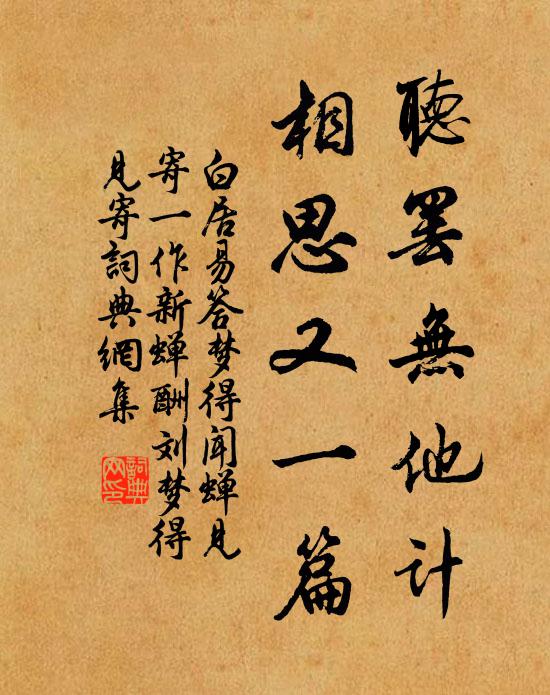 聽罷無他计
相思又一篇
白居易答梦得闻蝉见
寄一作新蝉酬刘梦得
见寄詞典網集
詞典
网印